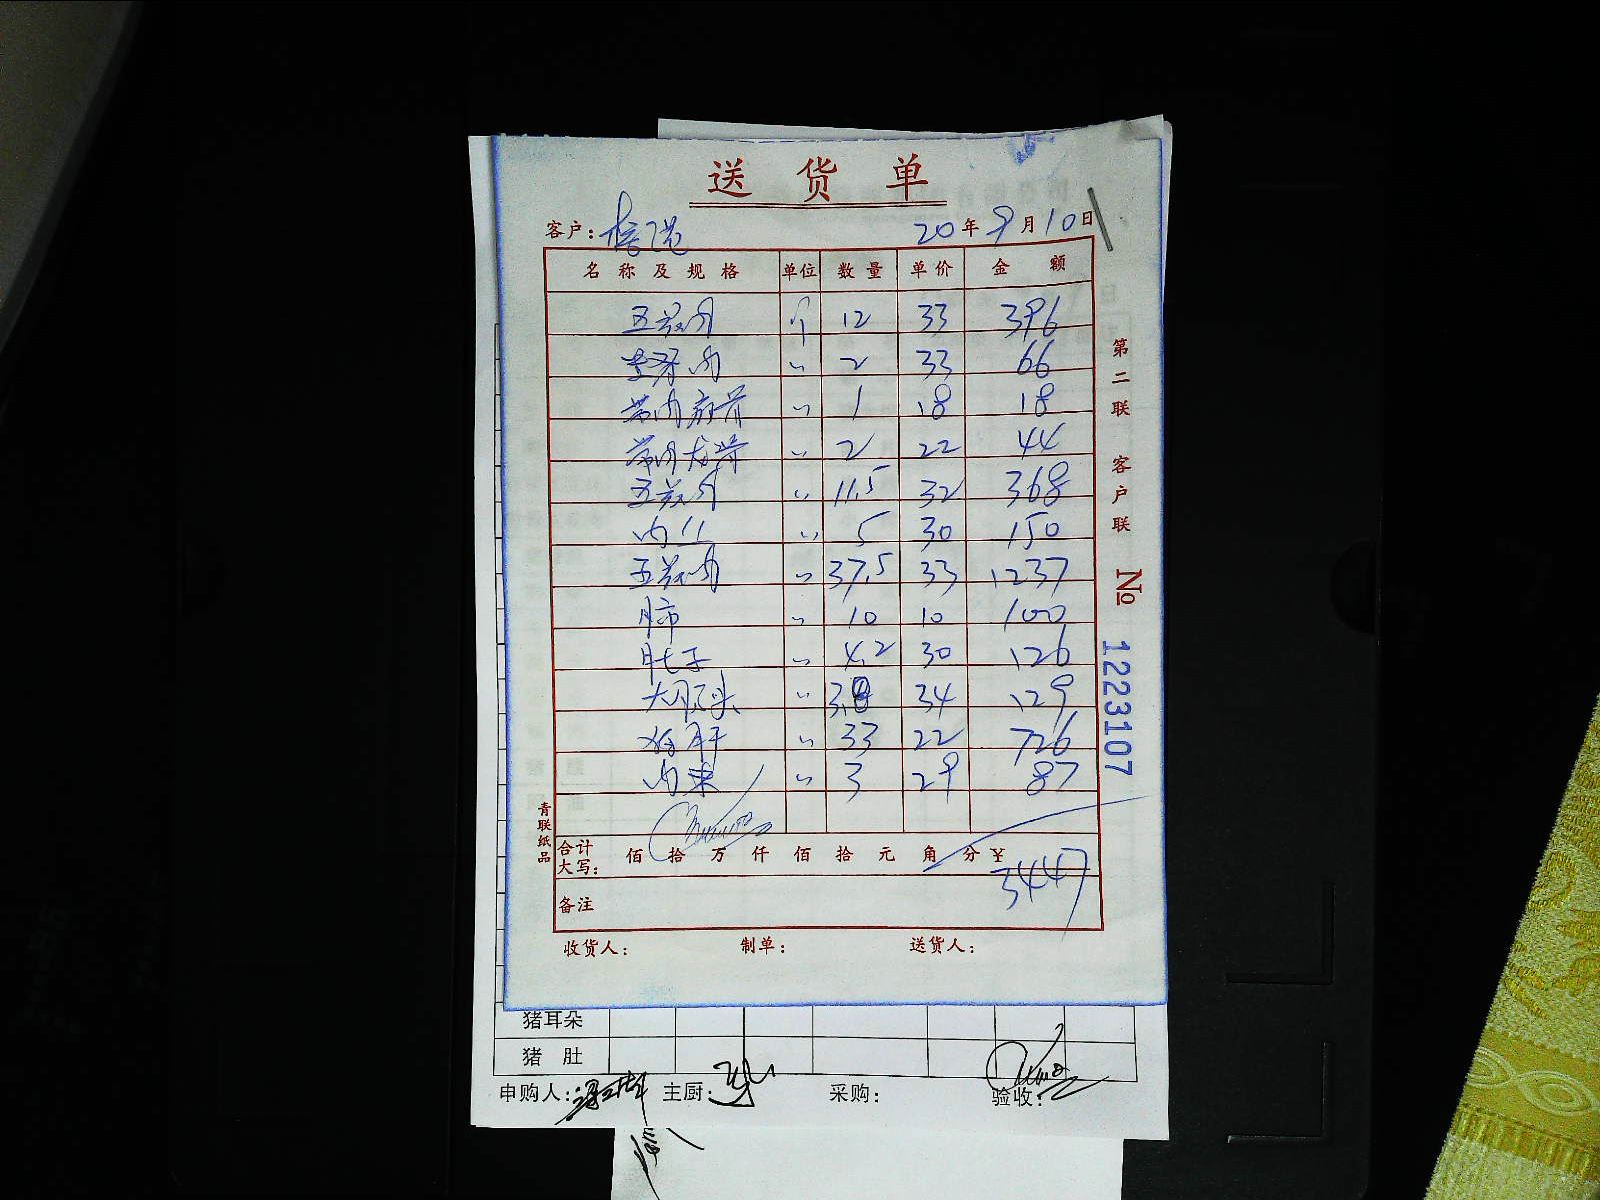 送货单
客户： 20年9月10日
名称及规格 单位 数量 单价 金额
五花肉 个 12 33 396
肉 〃 2 33 66
带肉 骨 〃 1 18 18
带肉龙骨 〃 2 22 44
五花肉 〃 11.5 32 368
肉丝 〃 5 30 150
五花肉 〃 37.5 33 1237
肺 〃 10 10 100
肚子 〃 4.2 30 126
大肠头 〃 3.8 34 129
猪肝 〃 33 22 726
肉末 〃 3 29 87
合计大写： 佰 拾 万 仟 佰 拾 元 角 分 ¥ 3447
备注
收货人： 制单： 送货人：
第二联 客户联 No 1223107
青联纸品
猪耳朵
猪肚
申购人： 主厨： 采购： 验收：